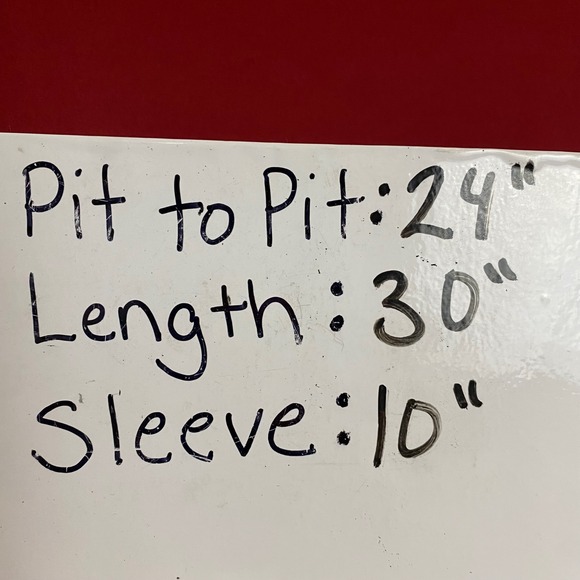 Pit to Pit: 24"
Length: 30"
Sleeve: 10"